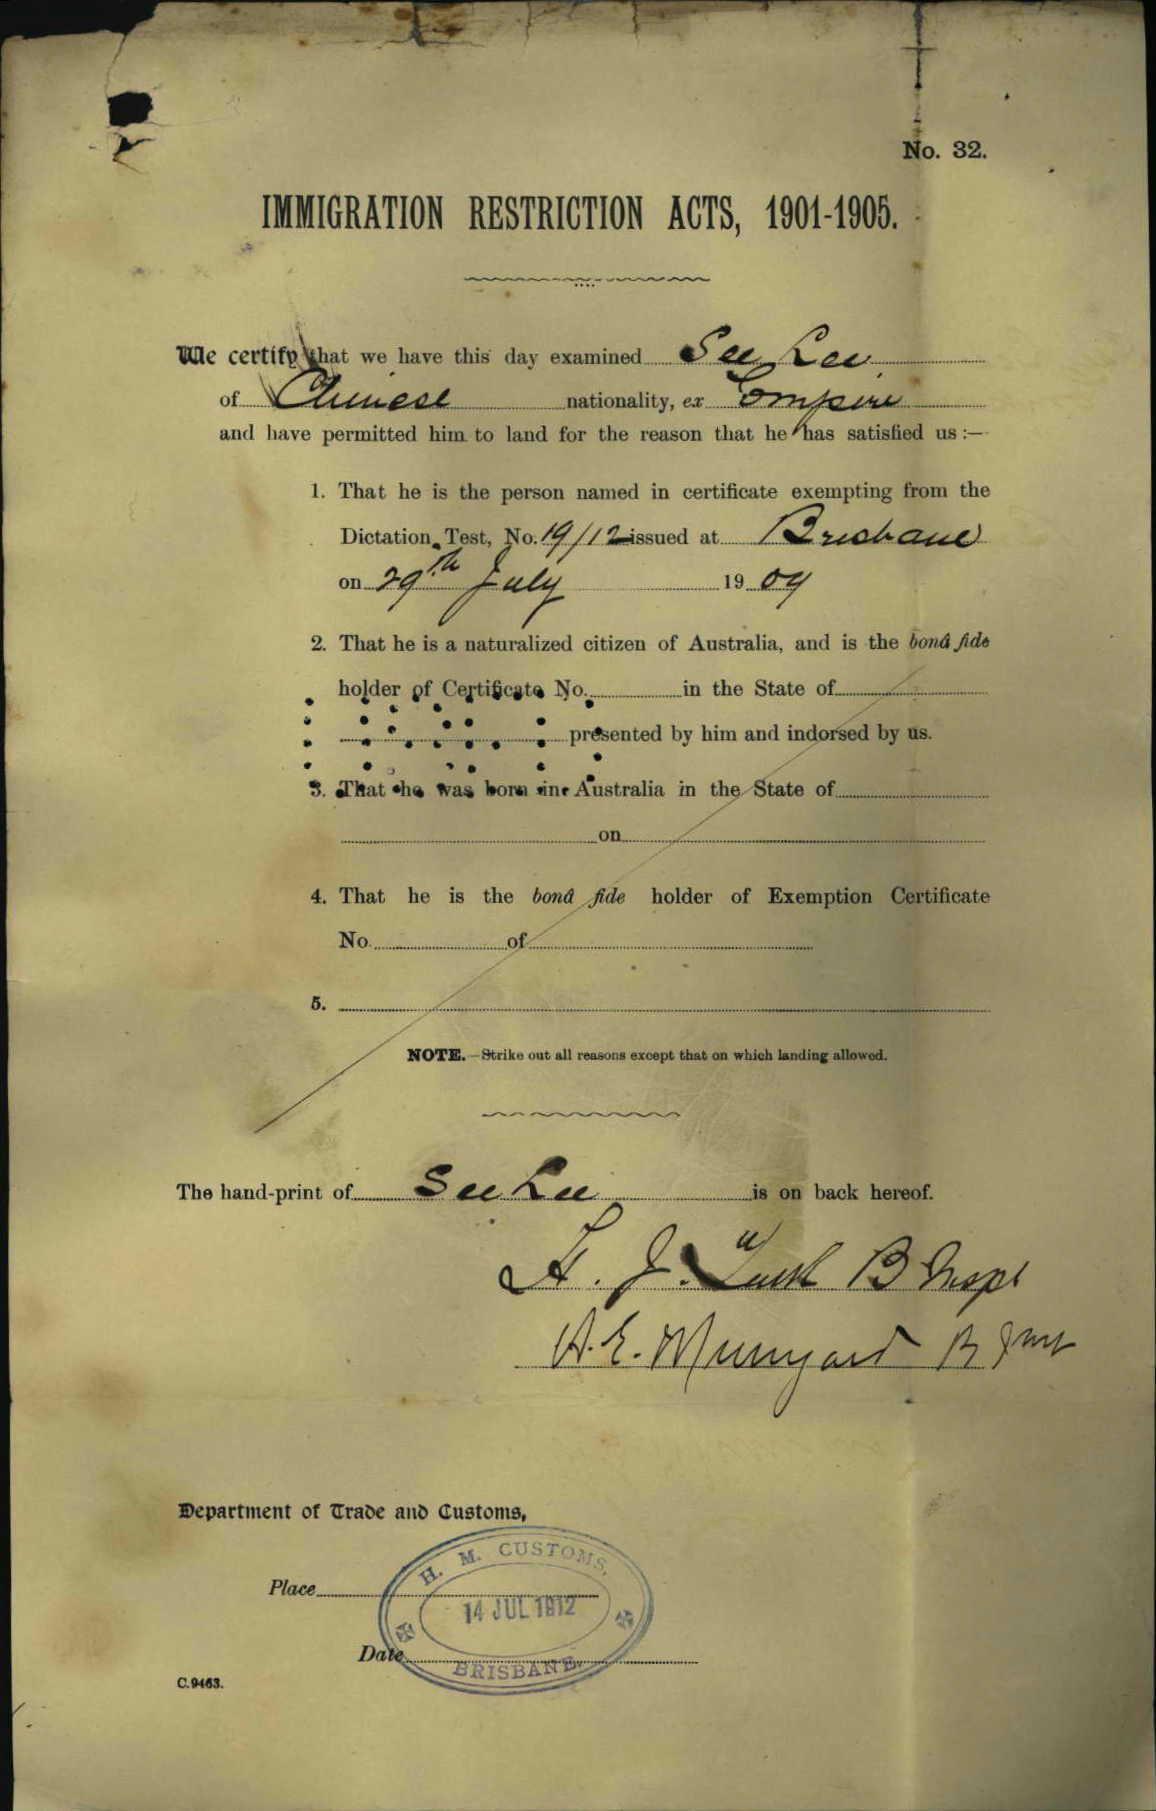 No. 32.
IMMIGRATION RESTRICTION ACTS, 1901-1905.
We certify that we have this day examined See Lee
of Chinese nationality, ex Empire
and have permitted him to land for the reason that he has satisfied us :—
1. That he is the person named in certificate exempting from the
Dictation Test, No. 19/12 issued at Brisbane
on 29th July 1909
2. That he is a naturalized citizen of Australia, and is the bonâ fide
holder of Certificate No. in the State of
presented by him and indorsed by us.
3. That he was born in Australia in the State of
on
4. That he is the bonâ fide holder of Exemption Certificate
No. of
5.
NOTE.—Strike out all reasons except that on which landing allowed.
The hand-print of See Lee is on back hereof.
J. B Inspr
H. E. B
Department of Trade and Customs,
H. M. CUSTOMS,
Place
14 JUL 1912
Date
BRISBANE.
C.9463.